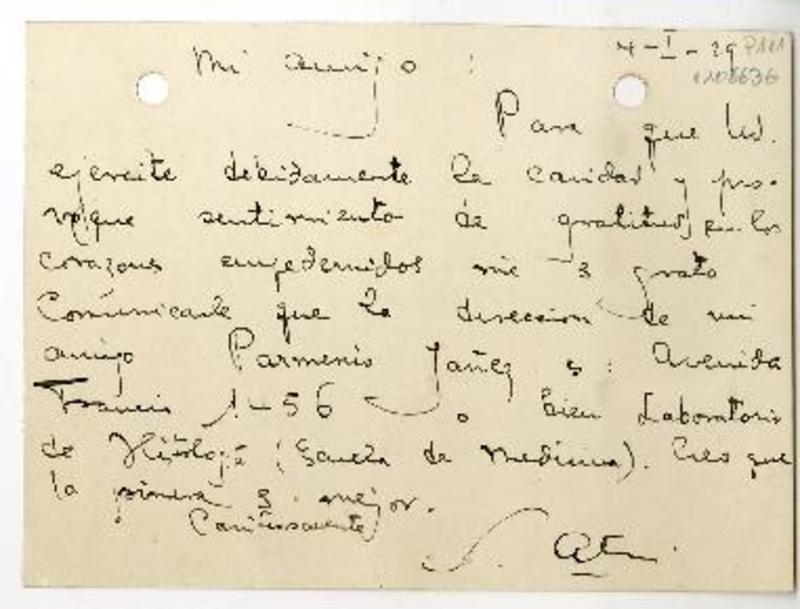 4-I-29
Mi amigo:
Para que Ud.
ejercite debidamente la caridad y pro-
voque sentimiento de gratitud en los
corazones empedernidos me es grato
comunicarle que la direccion de mi
amigo Parmenio Yañez es: Avenida
Francia 1-56 o bien Laboratorio
de Histología (Escuela de Medicina). Creo que
la primera es mejor.
Cariñosamente